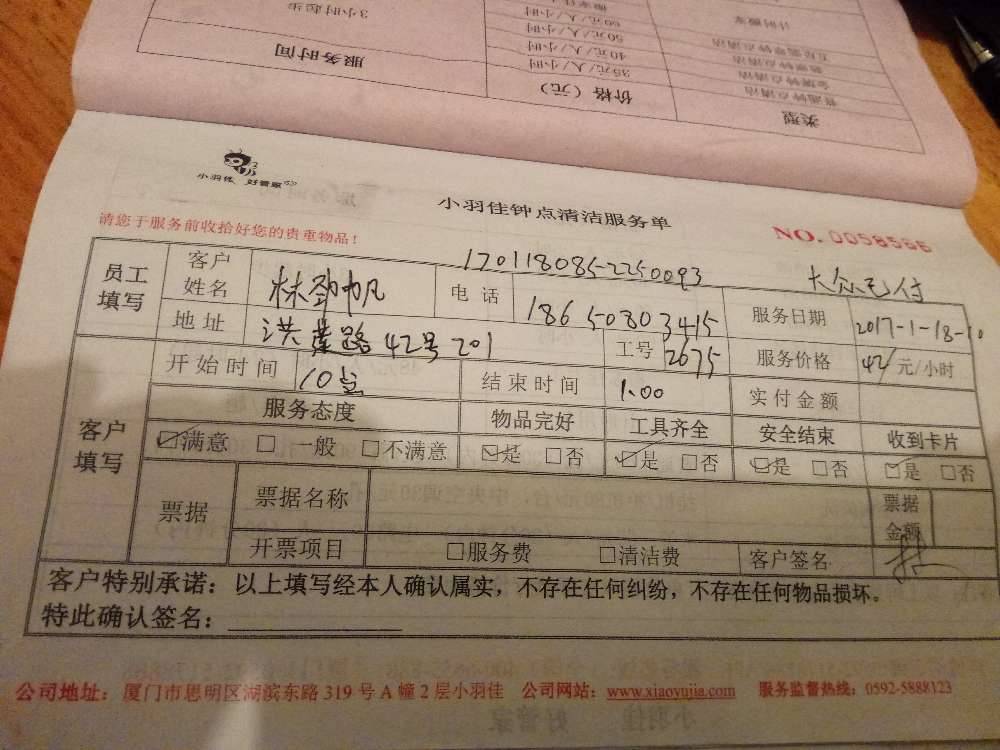 3小时起步
服务时间
60元/人/小时
50元/人/小时
40元/人/小时
39元/人/小时
价格（元）
计时搬家
金牌钟点清洁
普通钟点清洁
类型
小羽佳 好管家
小羽佳钟点清洁服务单
请您于服务前收拾好您的贵重物品！
NO. 0058566
1701180852250093
大众已付
员工填写
客户姓名 林劲帆 电话 18650803415 服务日期 2017-1-18-10
地址 洪莲路42号201 工号 2675 服务价格 42元/小时
客户填写
开始时间 10点 结束时间 1.00 实付金额
服务态度 物品完好 工具齐全 安全结束 收到卡片
☑满意 □一般 □不满意 ☑是 □否 ☑是 □否 ☑是 □否 ☑是 □否
票据 票据名称 票据金额
开票项目 □服务费 □清洁费 客户签名
客户特别承诺：以上填写经本人确认属实，不存在任何纠纷，不存在任何物品损坏。
特此确认签名：
公司地址：厦门市思明区湖滨东路319号A幢2层小羽佳 公司网站：www.xiaoyujia.com 服务监督热线：0592-5888123